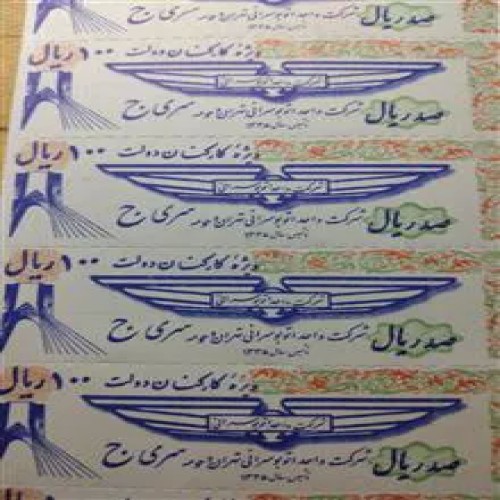 صد ریال شرکت واحد اتوبوسرانی تهران و حومه سری ج
ویژه کارکنان دولت ۱۰۰ ریال
شرکت واحد اتوبوسرانی
صد ریال شرکت واحد اتوبوسرانی تهران و حومه سری ج
تأسیس سال ۱۳۳۵
ویژه کارکنان دولت ۱۰۰ ریال
شرکت واحد اتوبوسرانی
صد ریال شرکت واحد اتوبوسرانی تهران و حومه سری ج
تأسیس سال ۱۳۳۵
ویژه کارکنان دولت ۱۰۰ ریال
شرکت واحد اتوبوسرانی
صد ریال شرکت واحد اتوبوسرانی تهران و حومه سری ج
تأسیس سال ۱۳۳۵
ویژه کارکنان دولت ۱۰۰ ریال
شرکت واحد اتوبوسرانی
صد ریال شرکت واحد اتوبوسرانی تهران و حومه سری ج
تأسیس سال ۱۳۳۵